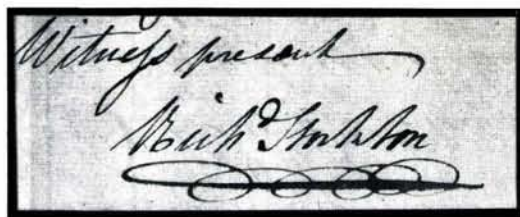 Witneſs present
Richd Stockton